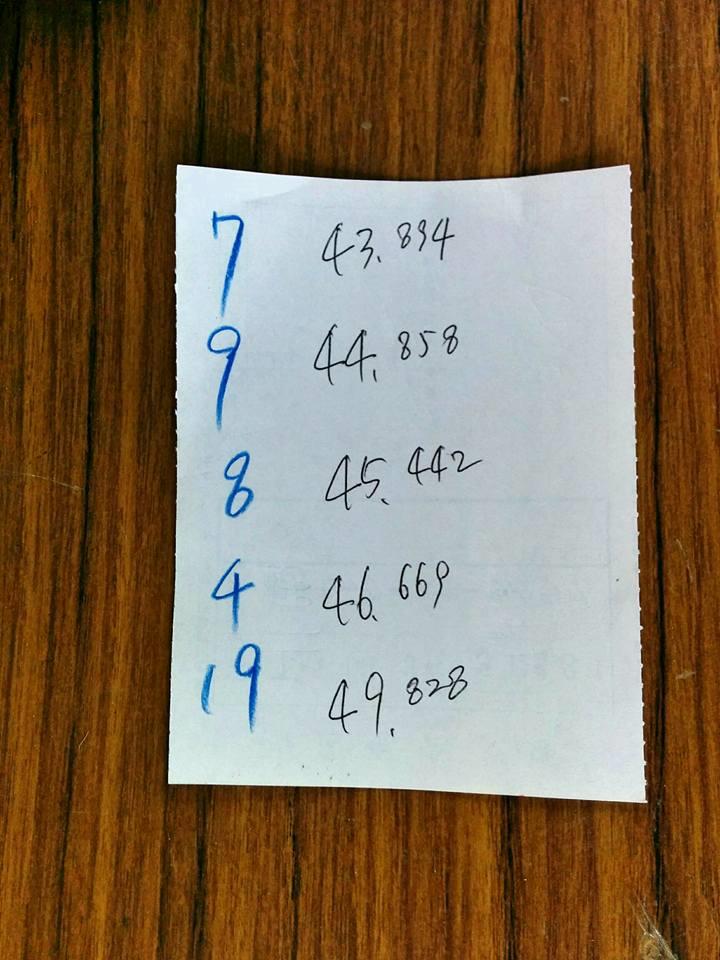 7 43.894
9 44.858
8 45.442
4 46.669
19 49.828